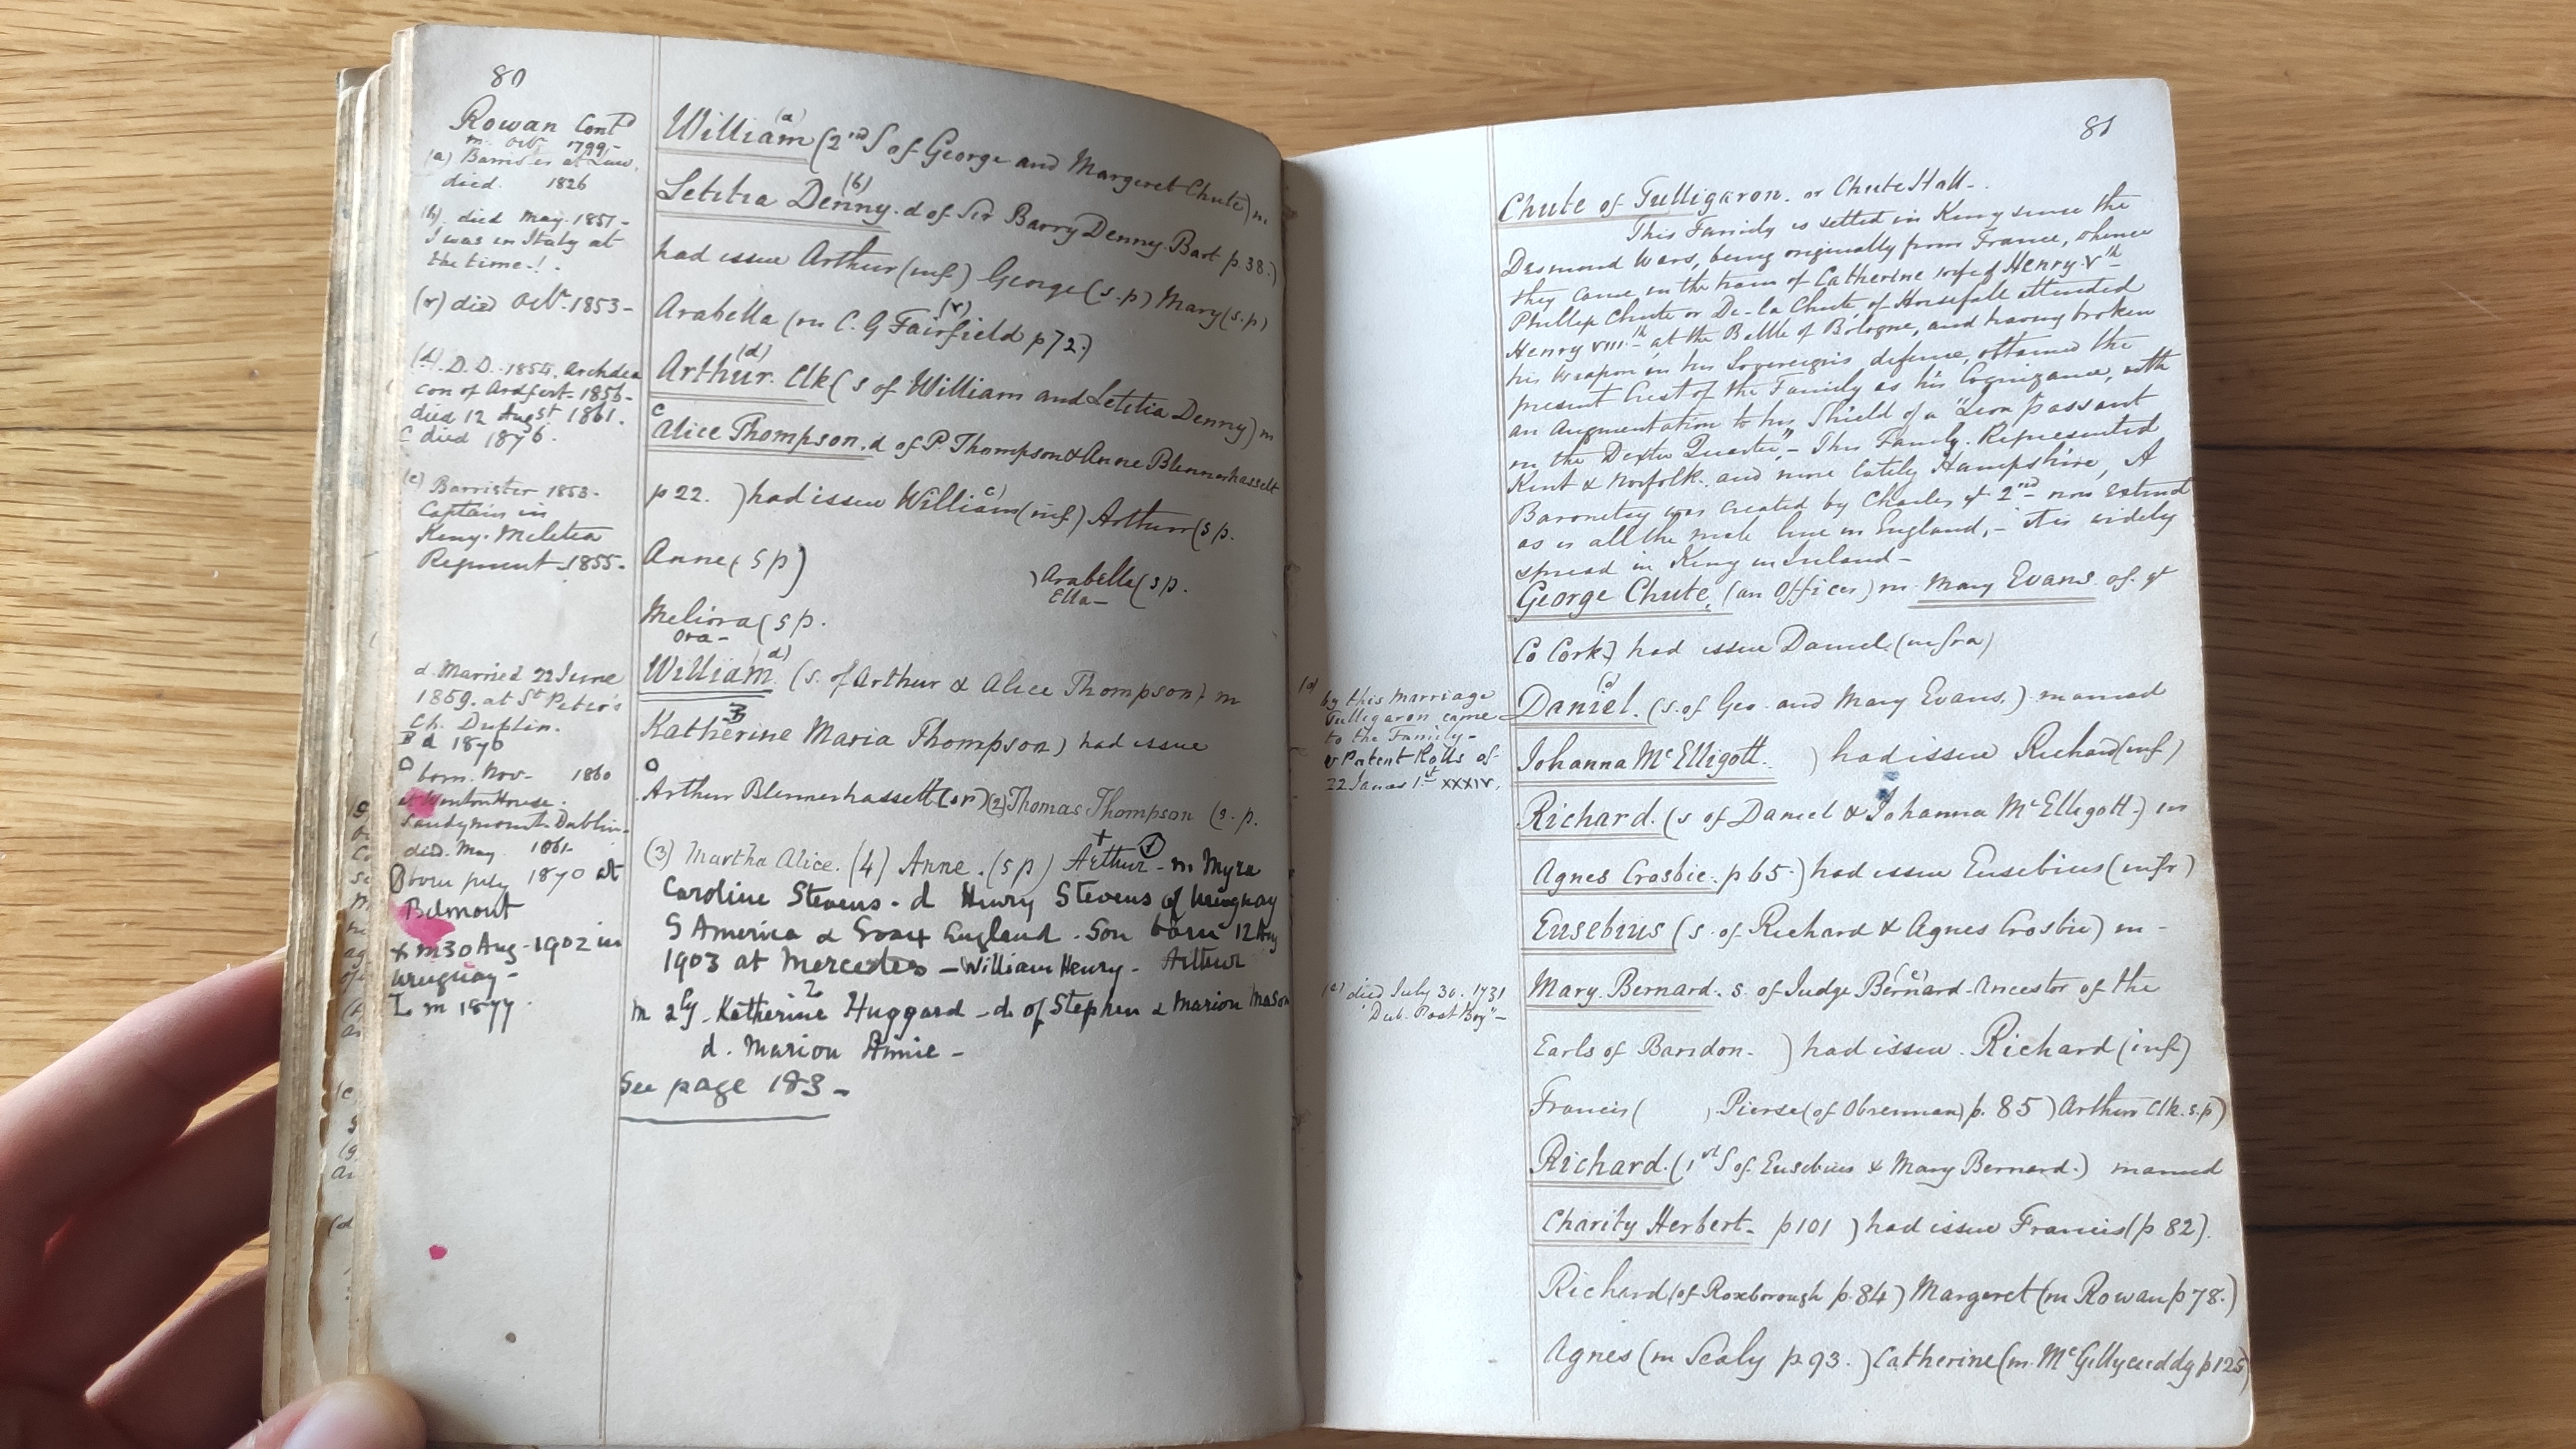 80
Rowan Contd
m. Octr 1799-
(a) Barrister at Law,
died. 1826
(b). died May. 1851-
I was in Italy at
the time-!.
(r) died Octr. 1853-
(d). D.D. 1854. Archdea
con of Ardfert- 1856-
died 12 Augst 1861.
C died 1876.
(c) Barrister 1853-
Captain in
Kerry. Meletia
Regiment-1855-
d. Married 22 June
1859. at St Peter's
Ch. Dublin.
B d 1870
O born. Nov- 1860
at Wenton House.
Sandymount-Dublin-
died. May 1861-
born july 1870 at
Belmont
x m 30 Aug-1902 in
Uruguay-
Z m 1877.
William (a) (2nd S of George and Margeret Chute) m
Letitia Denny (b). d of Sir Barry Denny. Bart p. 38.)
had issue Arthur (inf) George (s.p) Mary (s.p)
Arabella (m C. G Fairfield (r) p 72.)
Arthur. (d) Clk ( s of William and Letitia Denny) m
c Alice Thompson. d of P. Thompson & Anne Blennerhassett
p 22. ) had issue William c) (inf) Arthur (s p.
Anne (s p) ) Arabella (s p.
Ella-
Meliora (s p.
Ora-
William. d) (s. of Arthur & Alice Thompson) m
Katherine B Maria Thompson) had issue
O
Arthur Blennerhassett (sr) (2) Thomas Thompson (s. p.
(3) Martha Alice. (4) Anne. (s p) Arthur - m Myra
Caroline Stevens - d Henry Stevens of Uruguay
S America & England. Son born 12 Aug
1903 at Mercedes - William Henry - Arthur
m 2ly - Katherine Z Huggard - d. of Stephen & Marion Mason
d. Marion Annie -
See page 183 -
81
Chute of Tulligaron. or Chute Hall-.
This Family is settled in Kerry since the
Desmond Wars, being originally from France, whence
they came in the train of Catherine wife of Henry Vth
Phillip Chute or De-la Chute, of Horsefall attended
Henry VIIIth at the Battle of Bologne, and having broken
his Weapon in his Sovereign's defense, obtained the
present Crest of the Family as his Cognizance, with
an Augmentation to his Shield of a "Leon passant
on the Dexter Quarter," - This Family. Represented
Kent & Norfolk. and more lately Hampshire, A
Baronetcy was created by Charles ye 2nd now extinct
as is all the male line in England, - it is widely
spread in Kerry in Ireland -
George Chute, (an Officer) m Mary Evans of. ye
Co Cork) had issue Daniel (infra)
Daniel. (d) (s. of Geo. and Mary Evans.) married
Johanna McElligott. ) had issue Richard (inf)
Richard. (s of Daniel & Johanna McElligott.) m
Agnes Crosbie. p 65. ) had issue Eusebius (infr)
Eusebius (s. of Richard & Agnes Crosbie) m -
Mary. Bernard. s. of Judge Bernard (e) - Ancestor of the
Earls of Bandon. ) had issue. Richard (inf)
Francis ( ) Pierse (of Obrennan) p. 85 ) Arthur Clk. s.p)
Richard. (1st S of. Eusebius & Mary Bernard.) married
Charity Herbert- p 101 ) had issue Francis (p 82).
Richard (of Roxborough p. 84 ) Margeret (m Rowan p 78.)
Agnes (m Sealy p. 93. ) Catherine (m. McGillycuddy p 125)
(d)
by this marriage
Tulligaron came
to the Family-
v Patent Rolls of.
22 James 1st XXXIV.
(e) died July 30. 1731
"Dub. Post Boy"-